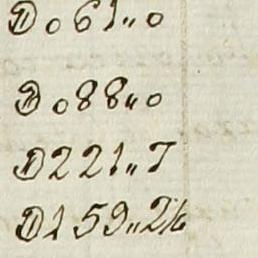 D061„0
D088„0
D221„7
D159„2½